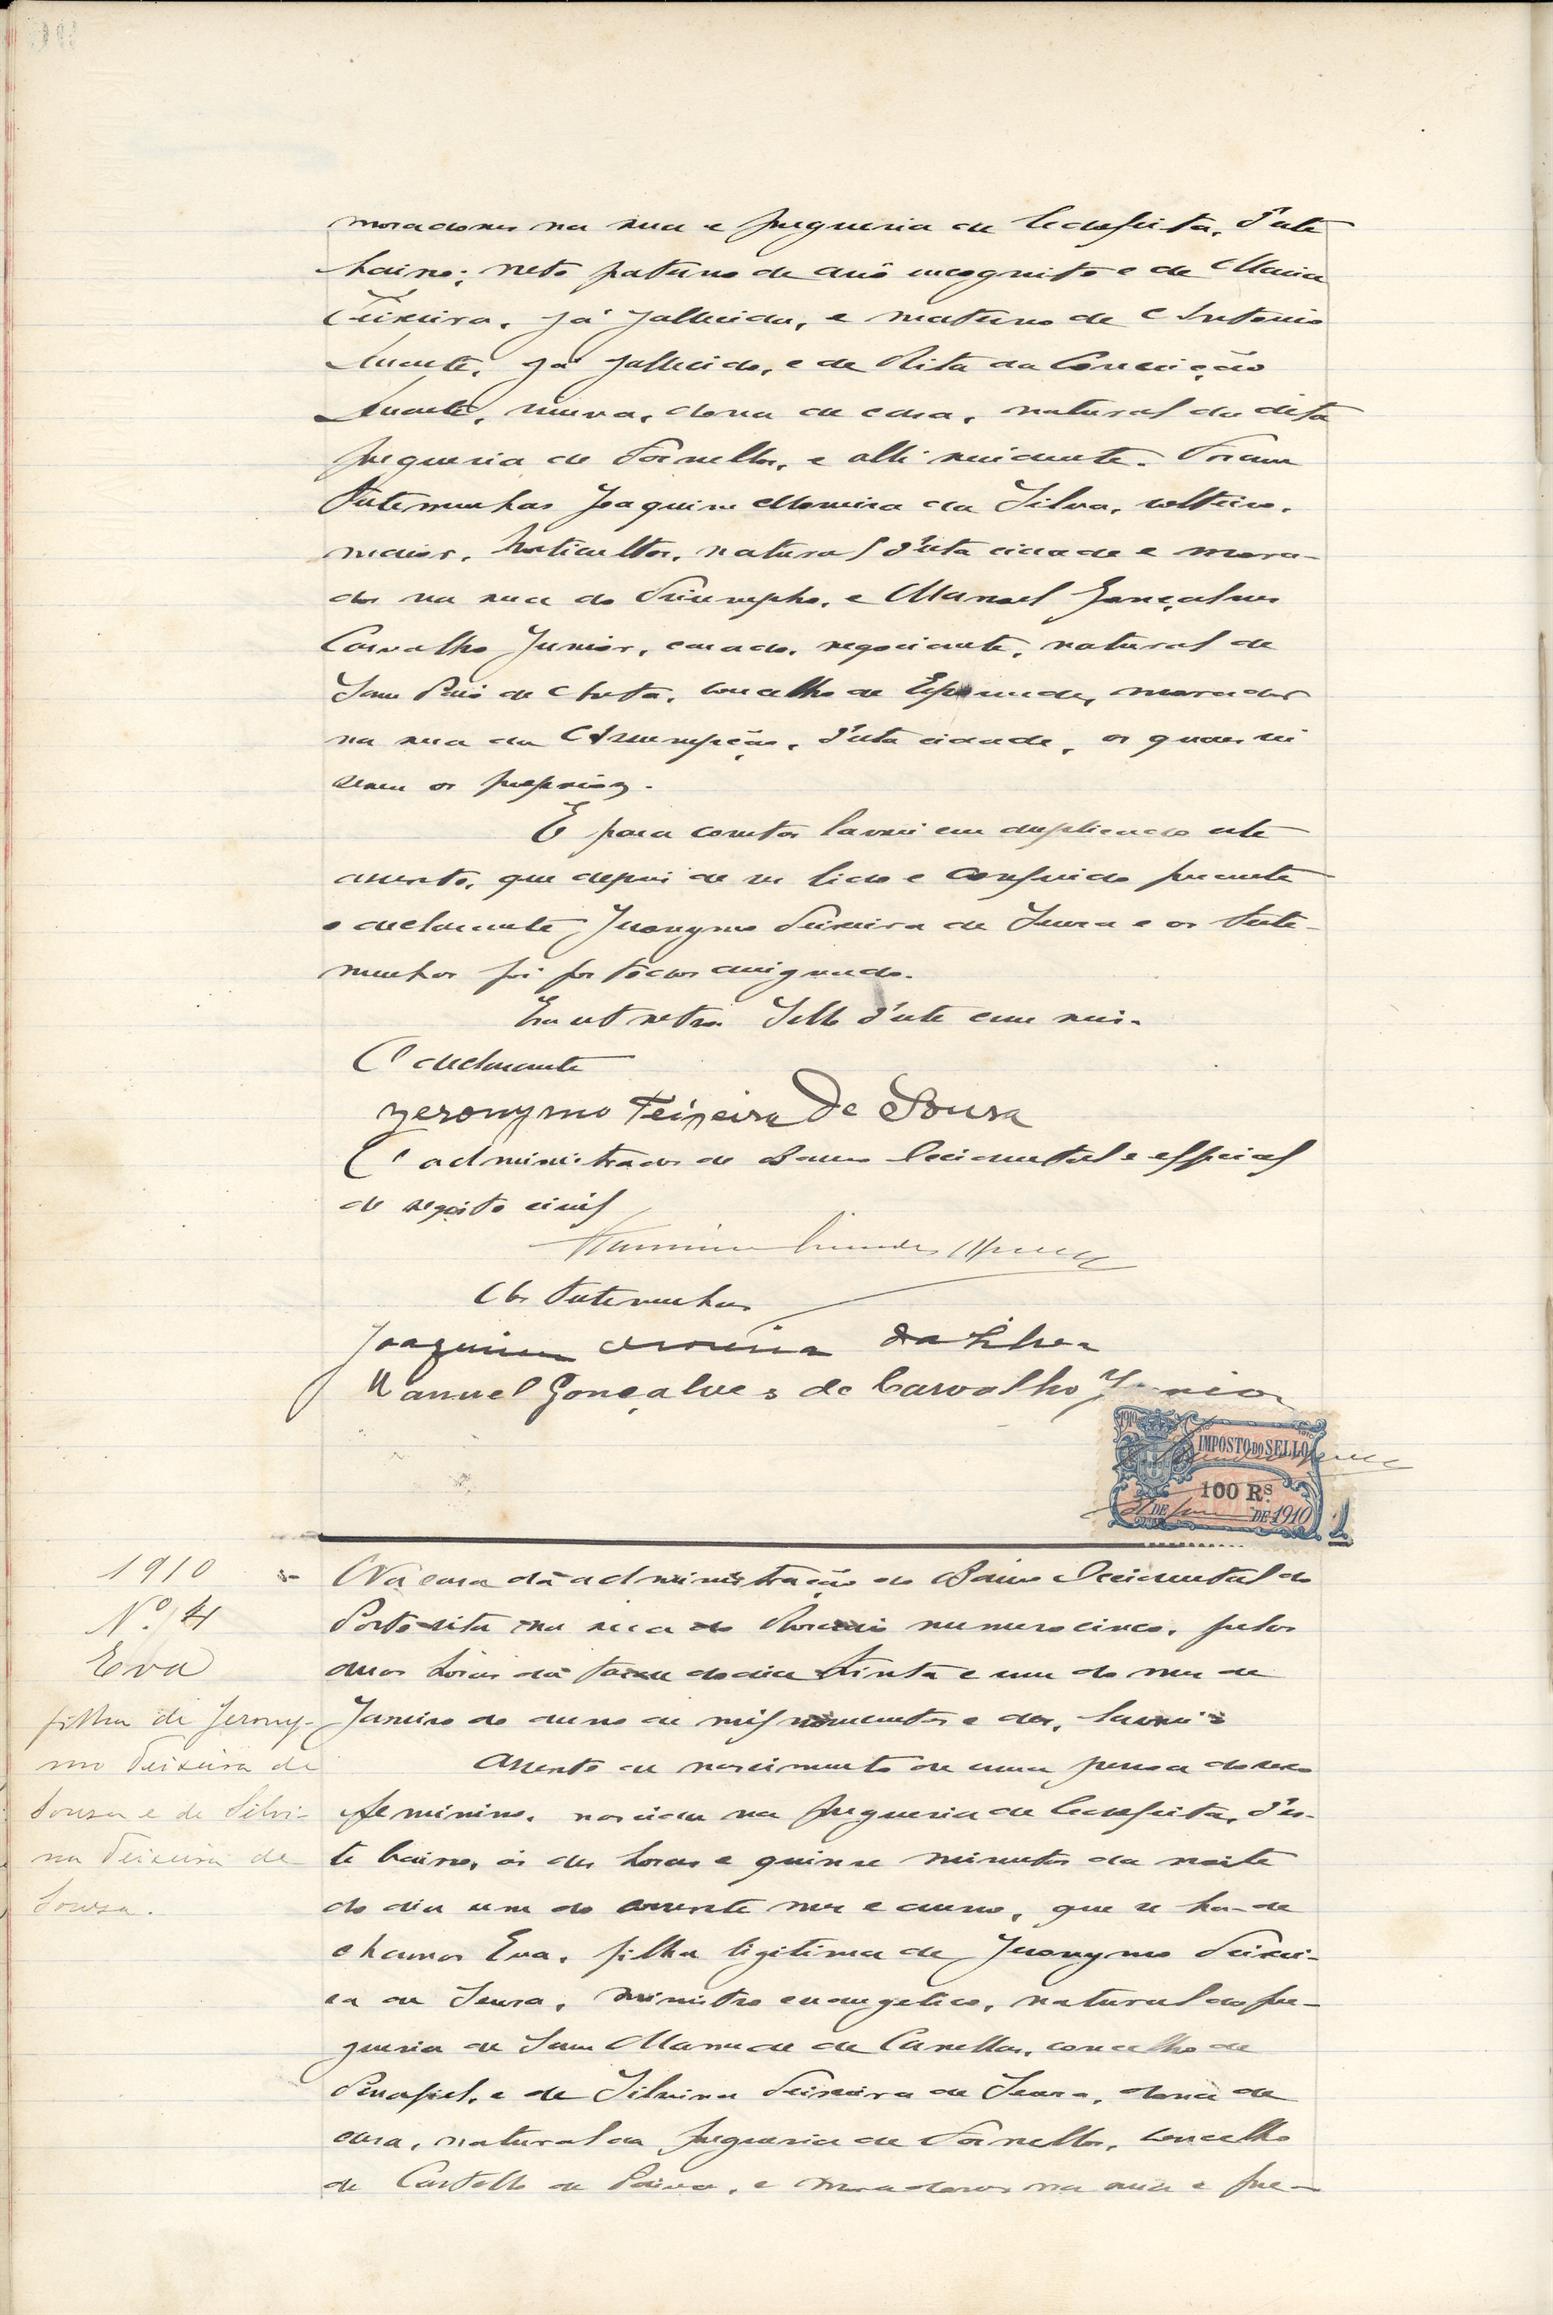 moradores na rua e freguesia de Cedofeita, d'este
bairro; neto paterno de avô incognito e de Maria
Teixeira, já fallecida, e materno de Antonio
Duarte, já fallecido, e de Rita da Conceição
Duarte, viuva, dona de casa, natural da dita
freguesia de Fornellos, e alli residente. Foram
testemunhas Joaquim Moreira da Silva, solteiro,
maior, horticultor, natural d'esta cidade e mora-
dor na rua do Triumpho, e Manoel Gonçalves
Carvalho Junior, casado, negociante, natural de
Sam Paio de Antas, concelho de Espozende, morador
na rua da Assumpção, d'esta cidade, os quaes sei
serem os proprios.
E para constar lavrei em duplicado este
assento, que depois de ser lido e conferido perante
o declarante Jeronymo Teixeira de Sousa e as teste-
munhas foi por todos assignado.
Era ut retro. Sello d'este cem reis.
O declarante
Jeronymo Teixeira De Sousa
O administrador do Bairro Occidental e official
do registo civil
As testemunhas
Joaquim Moreira da Silva
Manuel Gonçalves de Carvalho Junior
1910
IMPOSTO DO SELLO
100 Rs.
31 DE Jan DE 1910
1910
Nº. 4
Eva
filha de Jerony-
mo Teixeira de
Sousa e de Silvi-
na Teixeira de
Sousa.
Na casa da administração do Bairro Occidental do
Porto sita na rua do Rosario numero cinco, pelas
duas horas da tarde do dia trinta e um do mez de
Janeiro do anno de mil novecentos e dez, lavrei o
assento de nascimento de uma pessoa do sexo
feminino, nascida na freguesia de Cedofeita, d'es-
te bairro, ás dez horas e quinze minutos da noite
do dia um do corrente mez e anno, que se ha-de
chamar Eva, filha legitima de Jeronymo Teixei-
ra de Sousa, ministro evangelico, natural da fre-
guesia de Sam Mamede de Canellas, concelho de
Penafiel, e de Silvina Teixeira de Sousa, dona de
casa, natural da freguesia de Fornellos, concelho
de Castello de Paiva, e moradores na rua e fre-